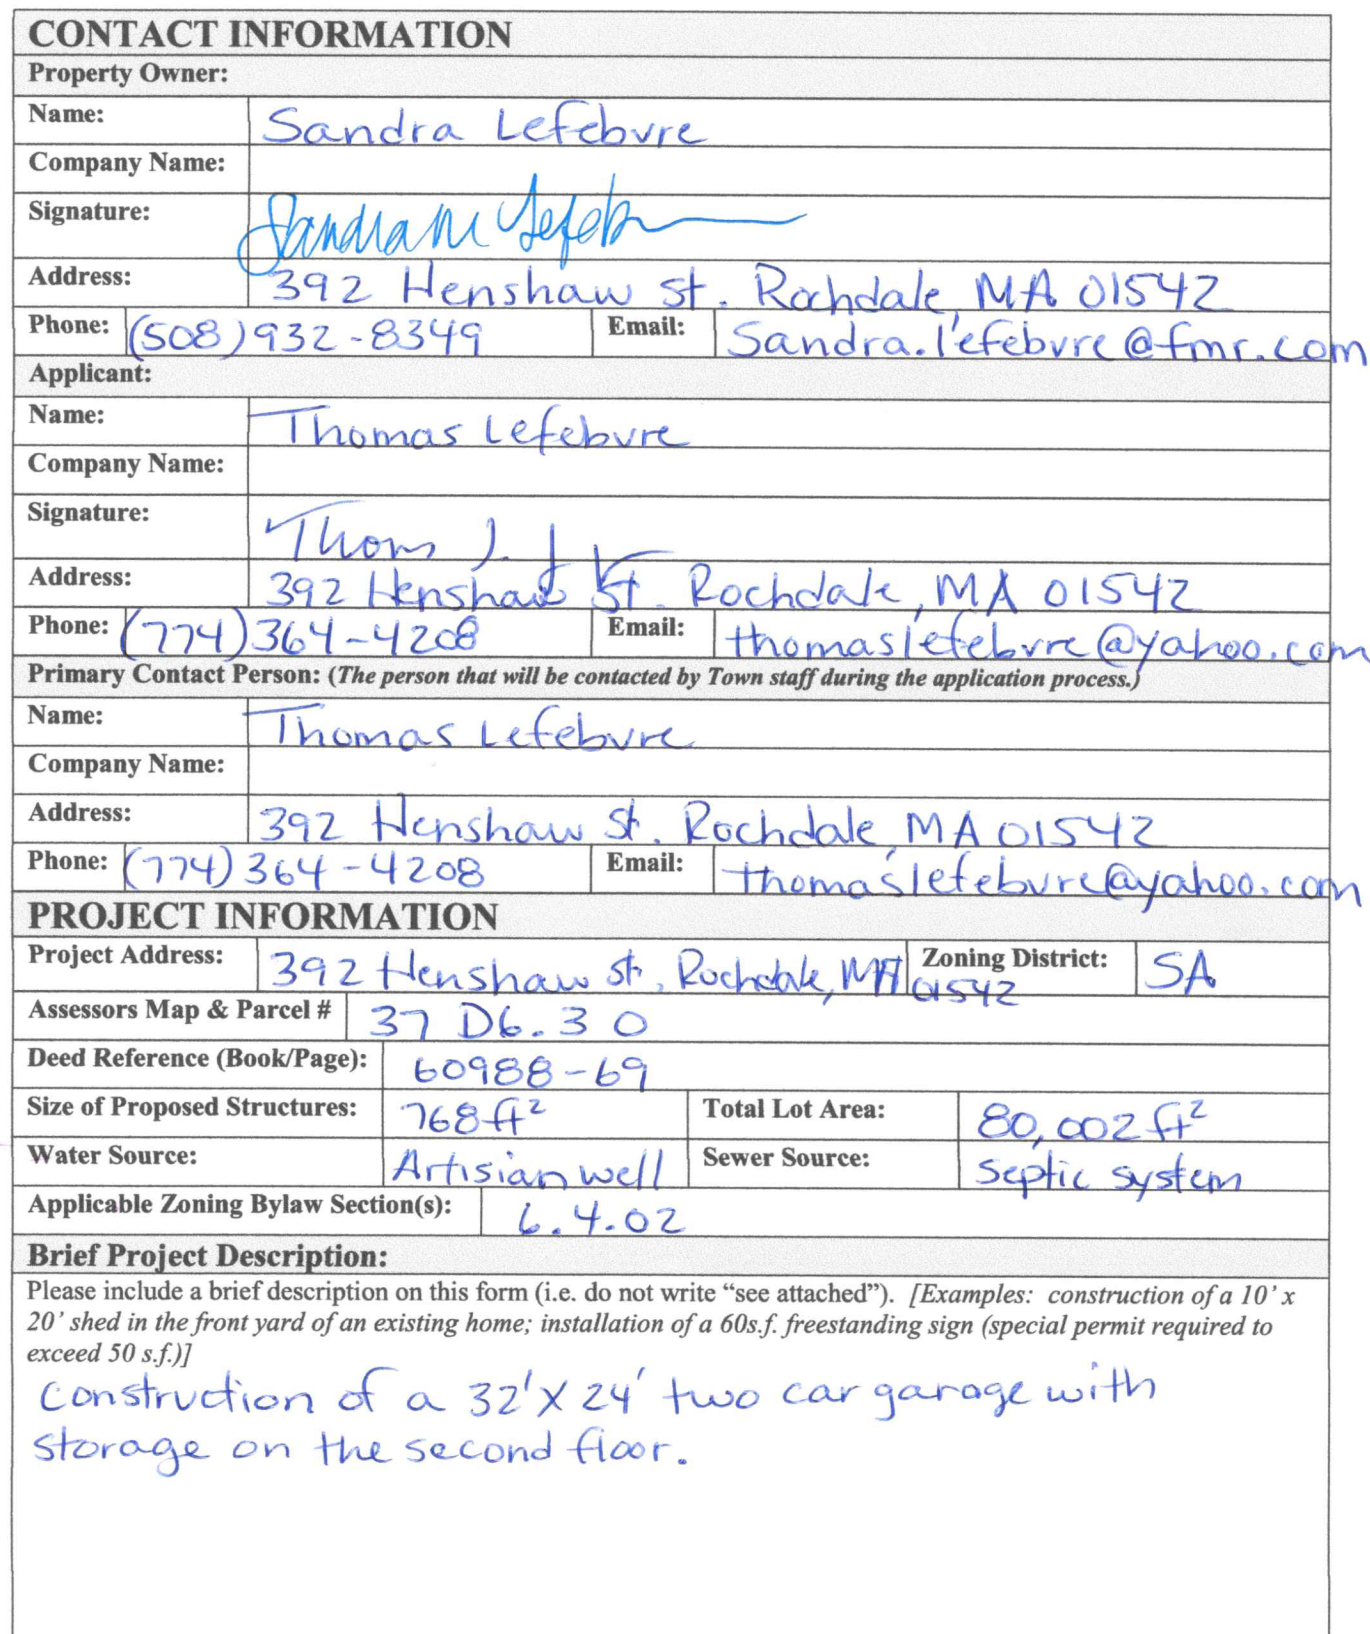 CONTACT INFORMATION
Property Owner:
Name: Sandra Lefebvre
Company Name:
Signature: Sandra M Lefeb
Address: 392 Henshaw St. Rochdale, MA 01542
Phone: (508) 932-8349 Email: Sandra.lefebvre@fmr.com
Applicant:
Name: Thomas Lefebvre
Company Name:
Signature: Thom J. L
Address: 392 Henshaw St. Rochdale, MA 01542
Phone: (774) 364-4208 Email: thomaslefebvre@yahoo.com
Primary Contact Person: (The person that will be contacted by Town staff during the application process.)
Name: Thomas Lefebvre
Company Name:
Address: 392 Henshaw St. Rochdale, MA 01542
Phone: (774) 364-4208 Email: thomaslefebvre@yahoo.com
PROJECT INFORMATION
Project Address: 392 Henshaw St, Rochdale, MA 01542 Zoning District: SA
Assessors Map & Parcel # 37 D6.3 0
Deed Reference (Book/Page): 60988-69
Size of Proposed Structures: 768 ft² Total Lot Area: 80,002 ft²
Water Source: Artisian well Sewer Source: Septic system
Applicable Zoning Bylaw Section(s): 6.4.02
Brief Project Description:
Please include a brief description on this form (i.e. do not write “see attached”). [Examples: construction of a 10’ x
20’ shed in the front yard of an existing home; installation of a 60s.f. freestanding sign (special permit required to
exceed 50 s.f.)]
Construction of a 32' X 24' two car garage with
storage on the second floor.